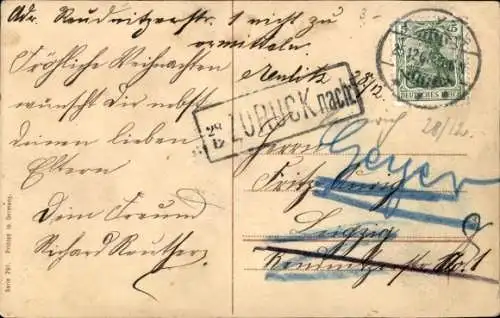 Adr. Reudnitzerstr. 1 nicht zu
ermitteln.
28/12.
Fröhliche Weihnachten
wünscht Dir nebst
deinen lieben
Eltern
Dein Freund
Richard
ZURÜCK nach
28/12.
Herrn
Geyer
Fritz
Leipzig
No. 1
DEUTSCHES REICH
5
5
Serie 791. Printed in Germany.